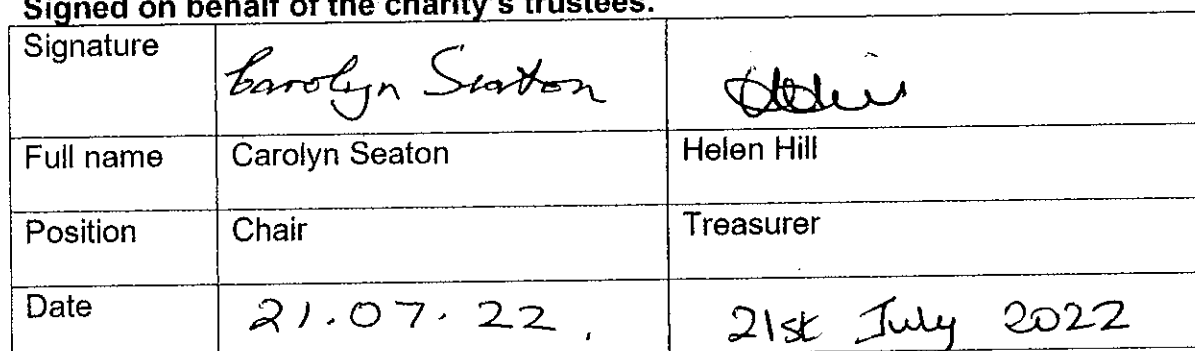 Signed on behalf of the charity's trustees.
Signature Carolyn Seaton
Full name Carolyn Seaton Helen Hill
Position Chair Treasurer
Date 21.07.22. 21st July 2022